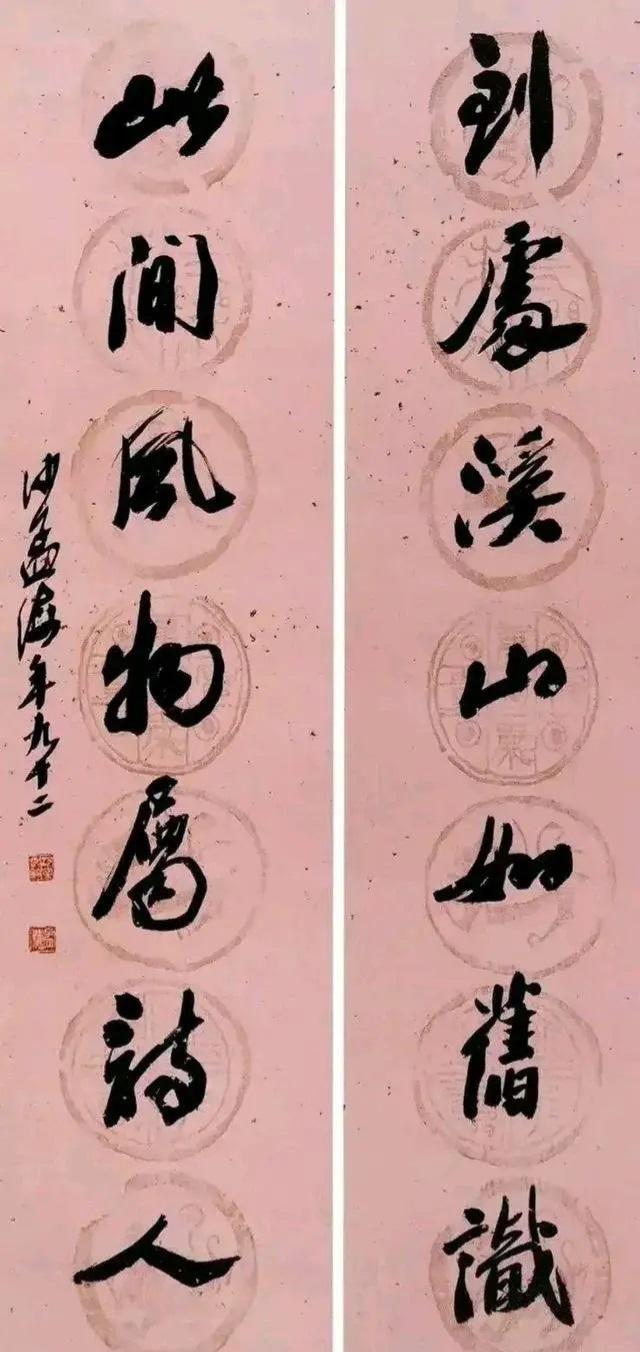 到處溪山如舊識
此間風物屬詩人
沙孟海年九十二